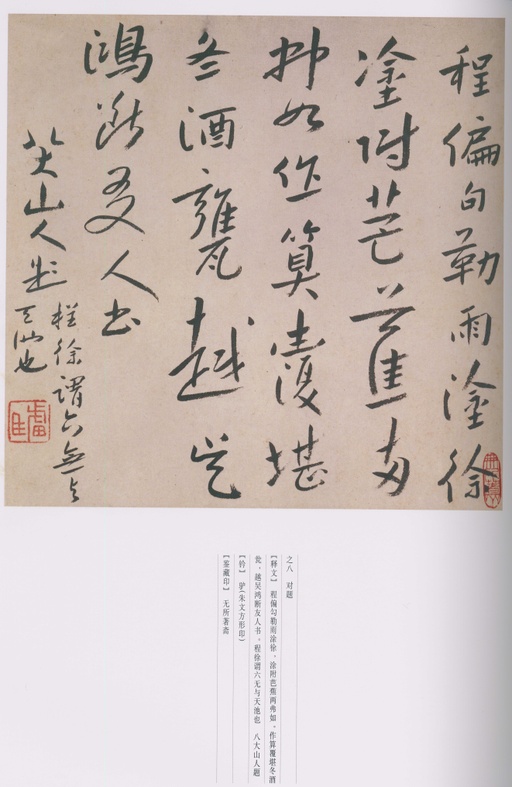 程偏勾勒雨塗徐
塗附芭蕉两
弗如作算覆堪
冬酒甕越吴
鴻断友人书
程徐谓六無与
八大山人题
天池也
之八 对题
【释文】 程偏勾勒雨涂徐。涂附芭蕉两弗如。作算覆堪冬酒
瓮，越吴鸿断友人书。程徐谓六无与天池也 八大山人题
【钤】 驴（朱文方形印）
【鉴藏印】 无所著斋